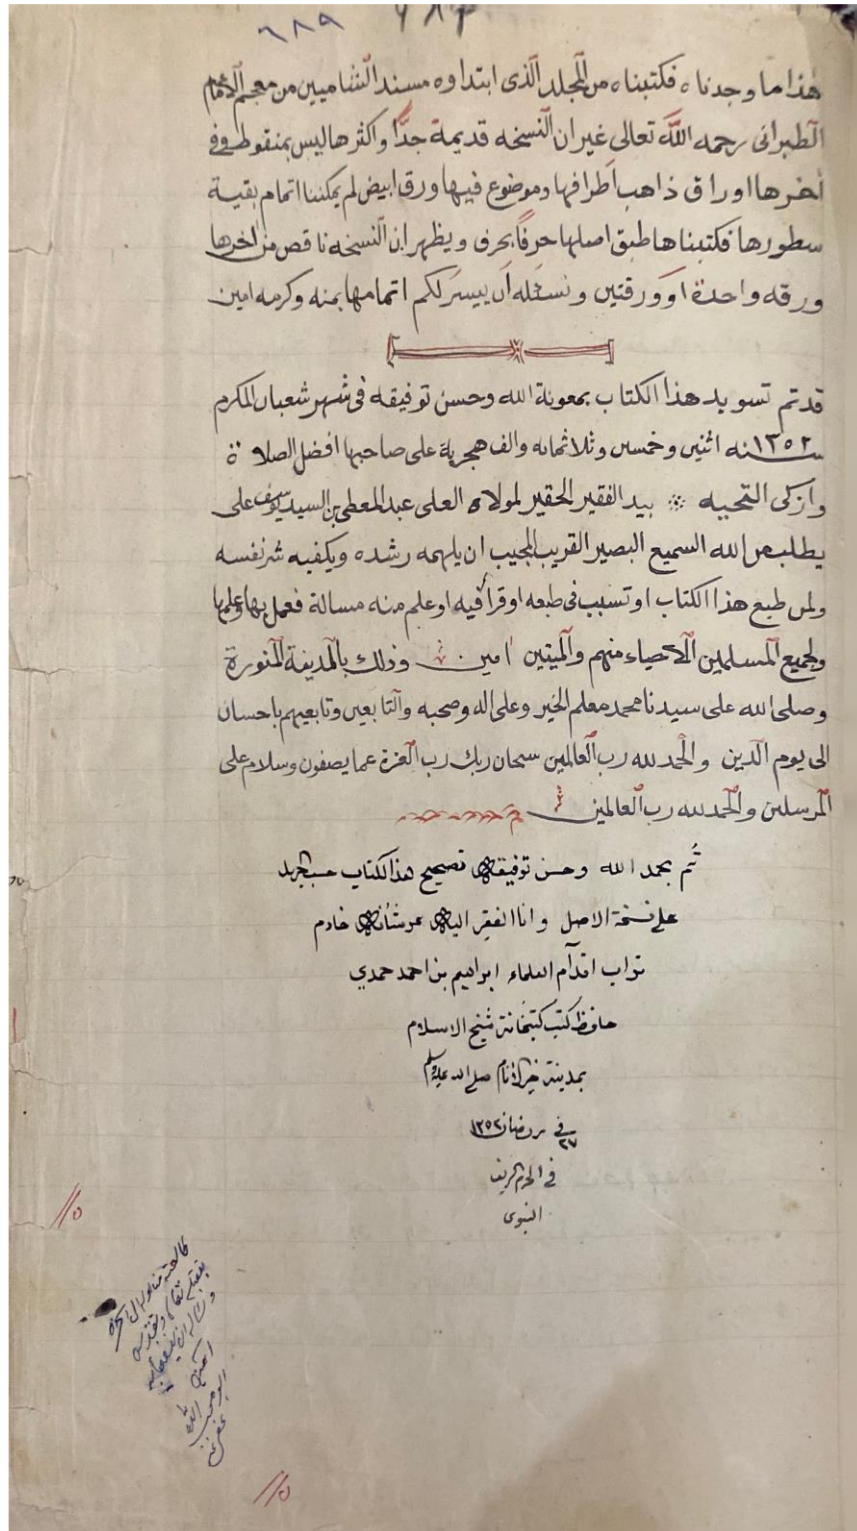 ٦٨٩
هذا ما وجدناه فكتبناه من المجلد الذى ابتداوه مسند الشاميين من معجم الامام
الطبرانى رحمه الله تعالى غير ان النسخه قديمة جدًا واكثرها ليس بمنقوط وفى
أخرها اوراق ذاهب أطرافها وموضوع فيها ورق ابيض لم يمكننا اتمام بقية
سطورها فكتبناها طبق اصلها حرفًا بحرف ويظهر ان النسخه ناقص من اخرها
ورقه واحدة او ورقتين ونسئله أن ييسر لكم اتمامها بمنه وكرمه امين
قد تم تسويد هذا الكتاب بمعونة الله وحسن توفيقه فى شهر شعبان المكرم
سنه ١٣٥٢ اثنين وخمسين وثلاثمائه والف هجرية على صاحبها افضل الصلاة
وازكى التحيه بيد الفقير الحقير لمولاه العلى عبد المعطى بن السيد يوسف على
يطلب من الله السميع البصير القريب المجيب ان يلهمه رشده ويكفيه شر نفسه
ولمن طبع هذا الكتاب او تسبب فى طبعه او قرأ فيه او علم منه مسالة فعمل بها وعلمها
ولجميع المسلمين الاحياء منهم والميتين امين وذلك بالمدينة المنورة
وصلى الله على سيدنا محمد معلم الخير وعلى اله وصحبه والتابعين وتابعيهم باحسان
الى يوم الدين والحمد لله رب العالمين سبحان ربك رب العزة عما يصفون وسلام على
المرسلين والحمد لله رب العالمين
تُم بحمد الله وحسن توفيقه تصحيح هذا الكتاب حسب الجهد
على نسخة الاصل وانا الفقير اليه عز شأنه خادم
تراب اقدام العلماء ابراهيم بن احمد حمدي
حافظ كتب كتبخانة شيخ الاسلام
بمدينة خير الانام صلى الله عليه وسلم
فى ٢٧ رمضان ١٣٥٢
فى الحرم الشريف
النبوى